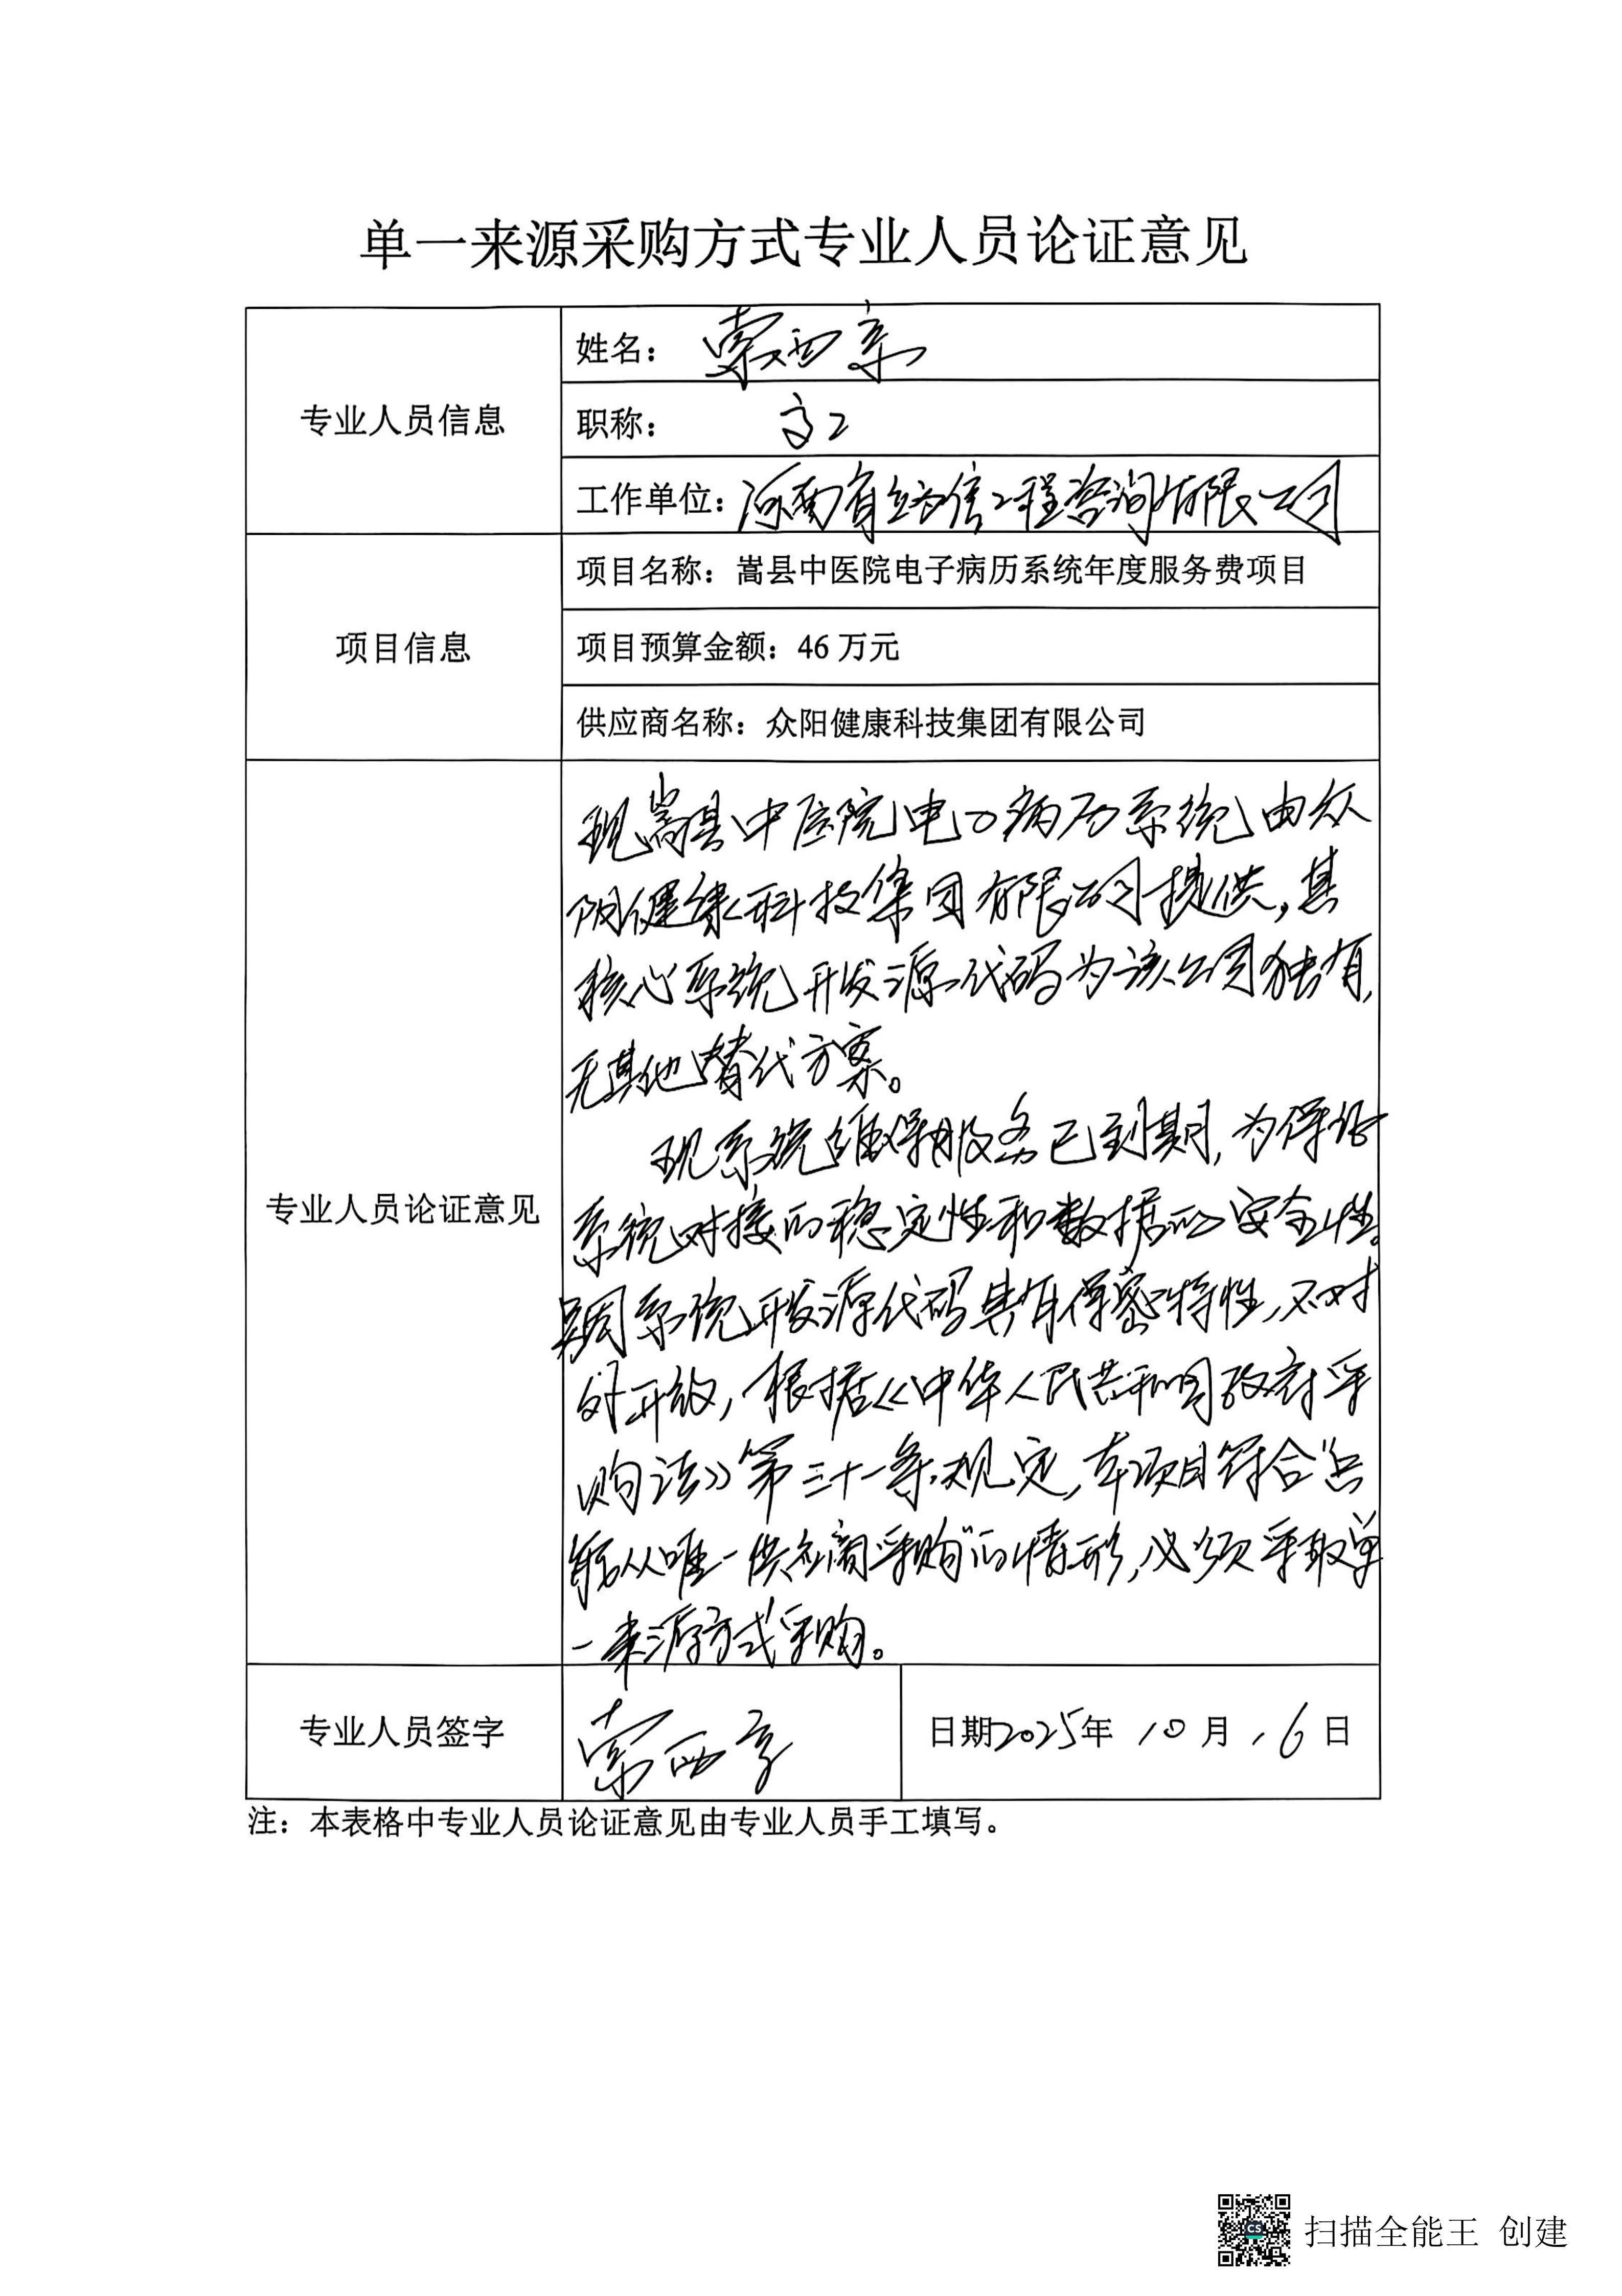 单一来源采购方式专业人员论证意见
专业人员信息
姓名：索西
职称：高工
工作单位：河南省经信工程咨询有限公司
项目信息
项目名称：嵩县中医院电子病历系统年度服务费项目
项目预算金额：46万元
供应商名称：众阳健康科技集团有限公司
专业人员论证意见
现嵩县中医院电子病历系统由众
阳健康科技集团有限公司提供，其
核心系统开发源代码为该公司独有，
无其他替代方案。
现系统维保服务已到期，为保证
系统对接的稳定性和数据的安全性。
系统开发源代码具有保密特性，不对
外开放，根据《中华人民共和国政府采
购法》第三十一条规定，本项目符合“只
能从唯一供应商采购”的情形，必须采取单
一来源方式采购。
专业人员签字
索西
日期2025年10月16日
注：本表格中专业人员论证意见由专业人员手工填写。
CS
扫描全能王 创建